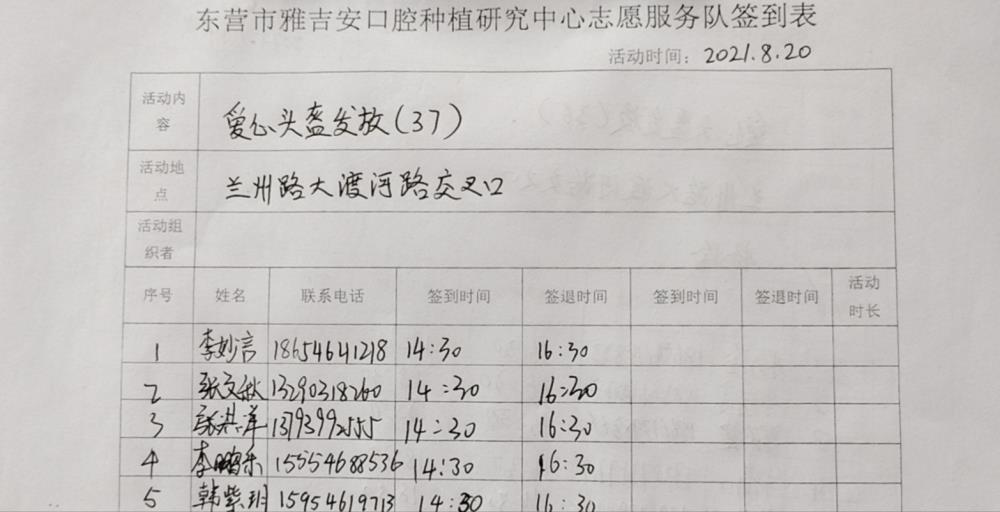 东营市雅吉安口腔种植研究中心志愿服务队签到表
活动时间：2021.8.20
活动内容 爱心头盔发放(37)
活动地点 兰州路大渡河路交叉口
活动组织者
序号 姓名 联系电话 签到时间 签退时间 签到时间 签退时间 活动时长
1 李妙言 18654641218 14:30 16:30
2 张文秋 13290318260 14:30 16:30
3 张洪洋 13793992555 14:30 16:30
4 李鹏乐 15554688536 14:30 16:30
5 韩紫玥 15954619713 14:30 16:30